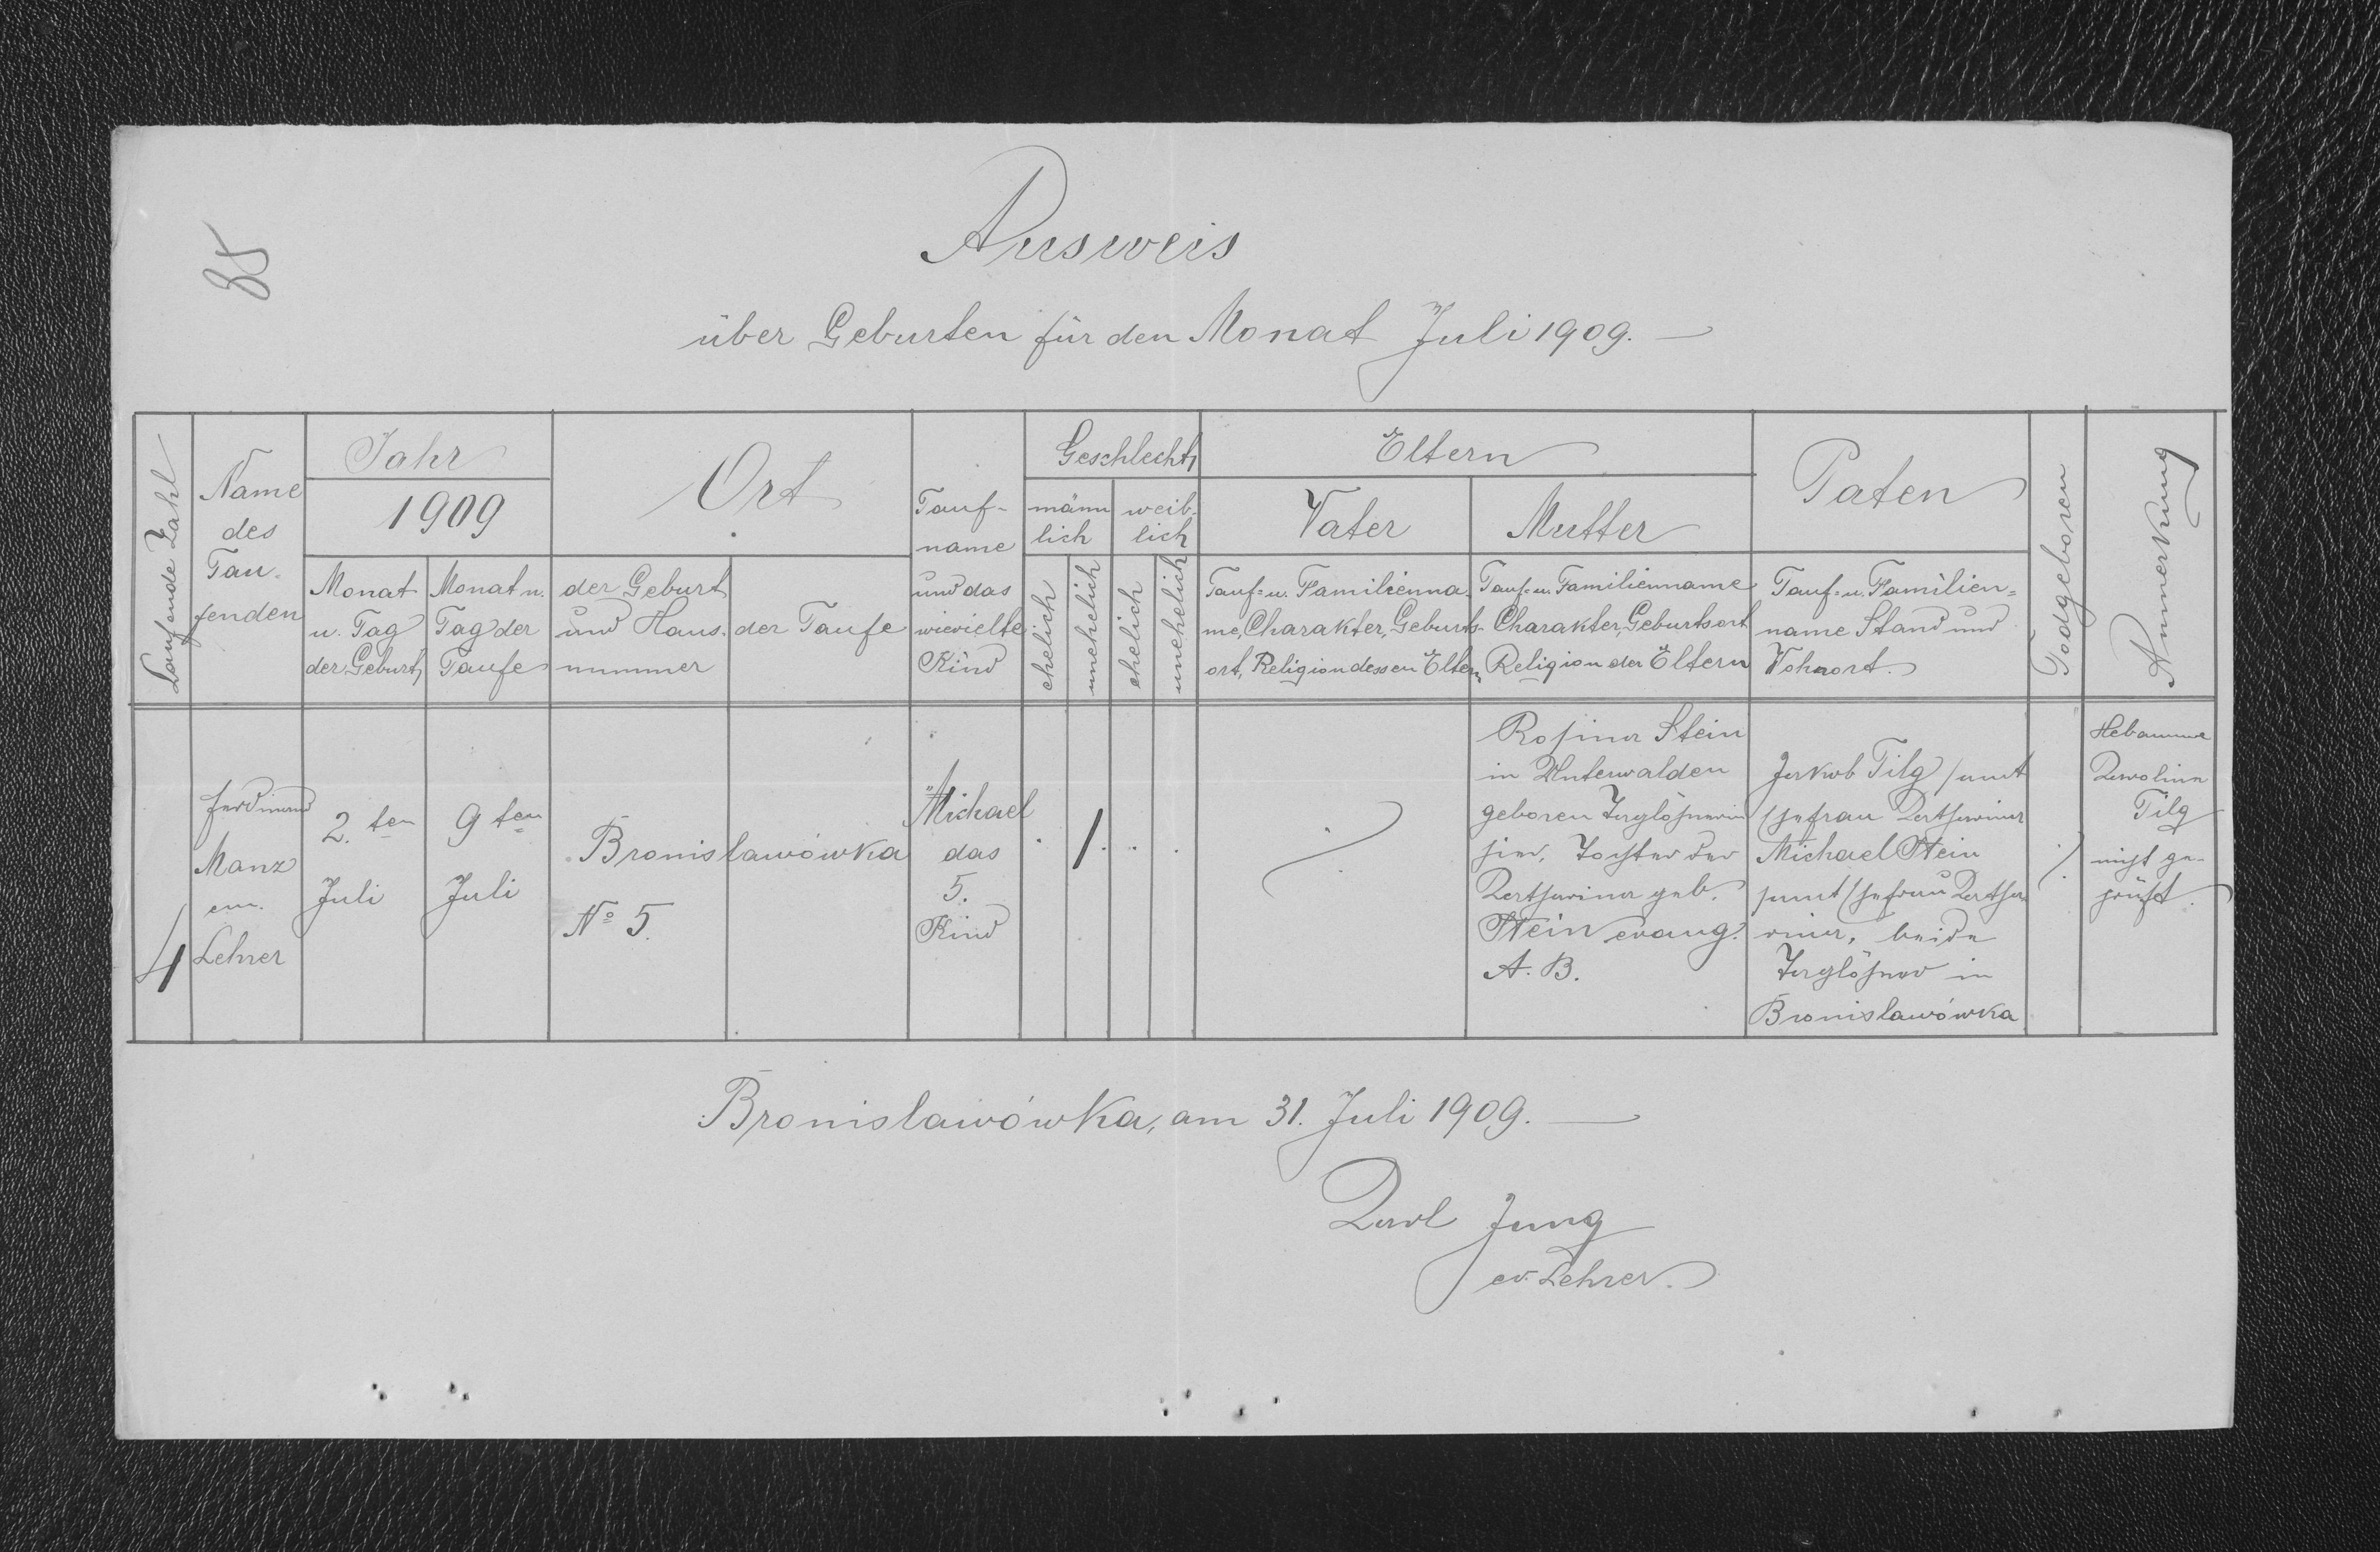 85
Ausweis
über Geburten für den Monat Juli 1909.
Laufende Zahl
Name
des
Tau-
fenden
Jahr
1909
Monat
u. Tag
der Geburt
Monat u.
Tag der
Taufe
Ort
der Geburt
und Haus-
nummer
der Taufe
Tauf-
name
und das
wievielte
Kind
Geschlecht
männ
lich
weib-
lich
ehelich
unehelich
ehelich
unehelich
Eltern
Vater
Mutter
Tauf- u. Familienna-
me, Charakter, Geburts-
ort, Religion dessen Eltern
Tauf- u. Familienname
Charakter, Geburtsort
Religion der Eltern
Paten
Tauf- u. Familien-
name Stand und
Wohnort.
Todgeboren
Anmerkung
4
Ferdinand
Manz
em.
Lehrer
2. ten
Juli
9 ten
Juli
Bronislawówka
No 5.
Michael
das
5.
Kind
1
Rosina Stein
in Unterwalden
geboren Taglöhnerin
hier, Tochter der
Katharina geb.
Stein evang.
A. B.
Jakob Tilg samt
Ehefrau Katharina
Michael Stein
samt Ehefrau Katha-
rina, beide
Taglöhner in
Bronislawówka
Hebamme
Karolina
Tilg
nicht ge-
prüft.
Bronislawówka, am 31. Juli 1909.
Karl Jung
ev. Lehrer.